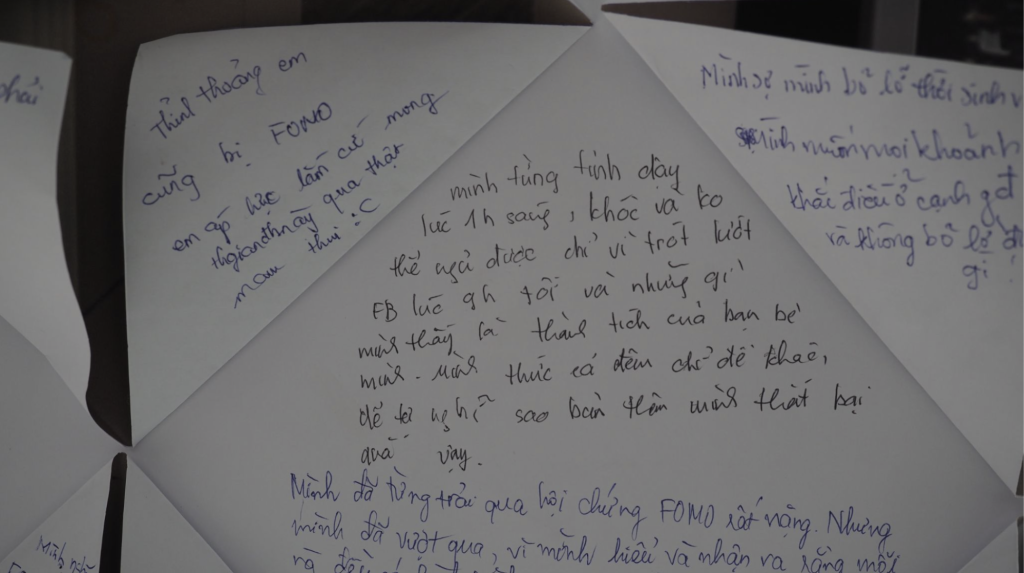 phải
Thỉnh thoảng em
cũng bị FOMO
em áp lực lắm cứ mong
thgian đh này qua thật
mau thui :C
Mình sợ mình bỏ lỡ thời sinh v
Mình muốn mọi khoảnh
khắc điều ở cạnh gđ
và không bỏ lỡ đi
gì
mình từng tỉnh dậy
lúc 1h sáng, khóc và ko
thể ngủ được chỉ vì trót lướt
FB lúc 9h tối và những gì
mình thấy là thành tích của bạn bè
mình. Mình thức cả đêm chỉ để khóc,
để tự nghĩ sao bản thân mình thất bại
quá vậy.
Mình đã từng trải qua hội chứng FOMO rất nặng. Nhưng
mình đã vượt qua, vì mình hiểu và nhận ra rằng mỗi
và đều
Mình